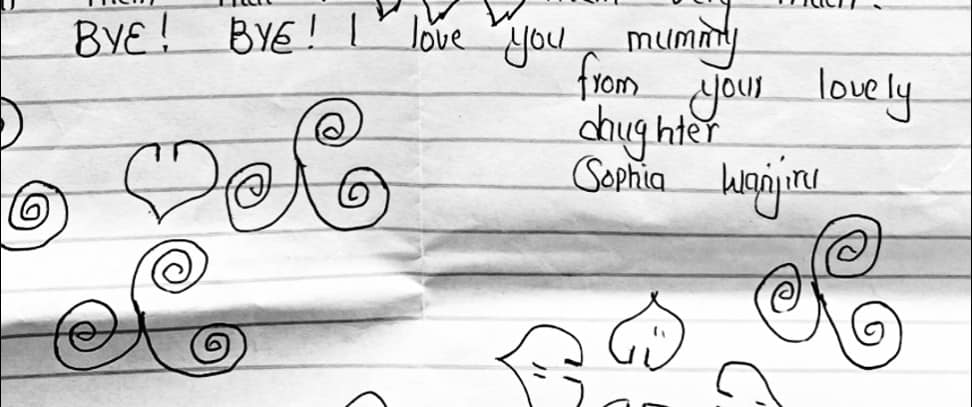 BYE! BYE! I love you mummy
from your lovely
daughter
Sophia Wanjiru